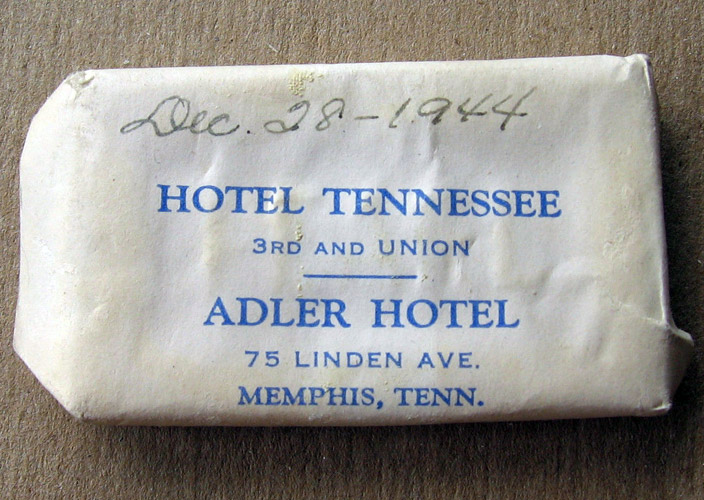 Dec. 28-1944
HOTEL TENNESSEE
3RD AND UNION
ADLER HOTEL
75 LINDEN AVE.
MEMPHIS, TENN.